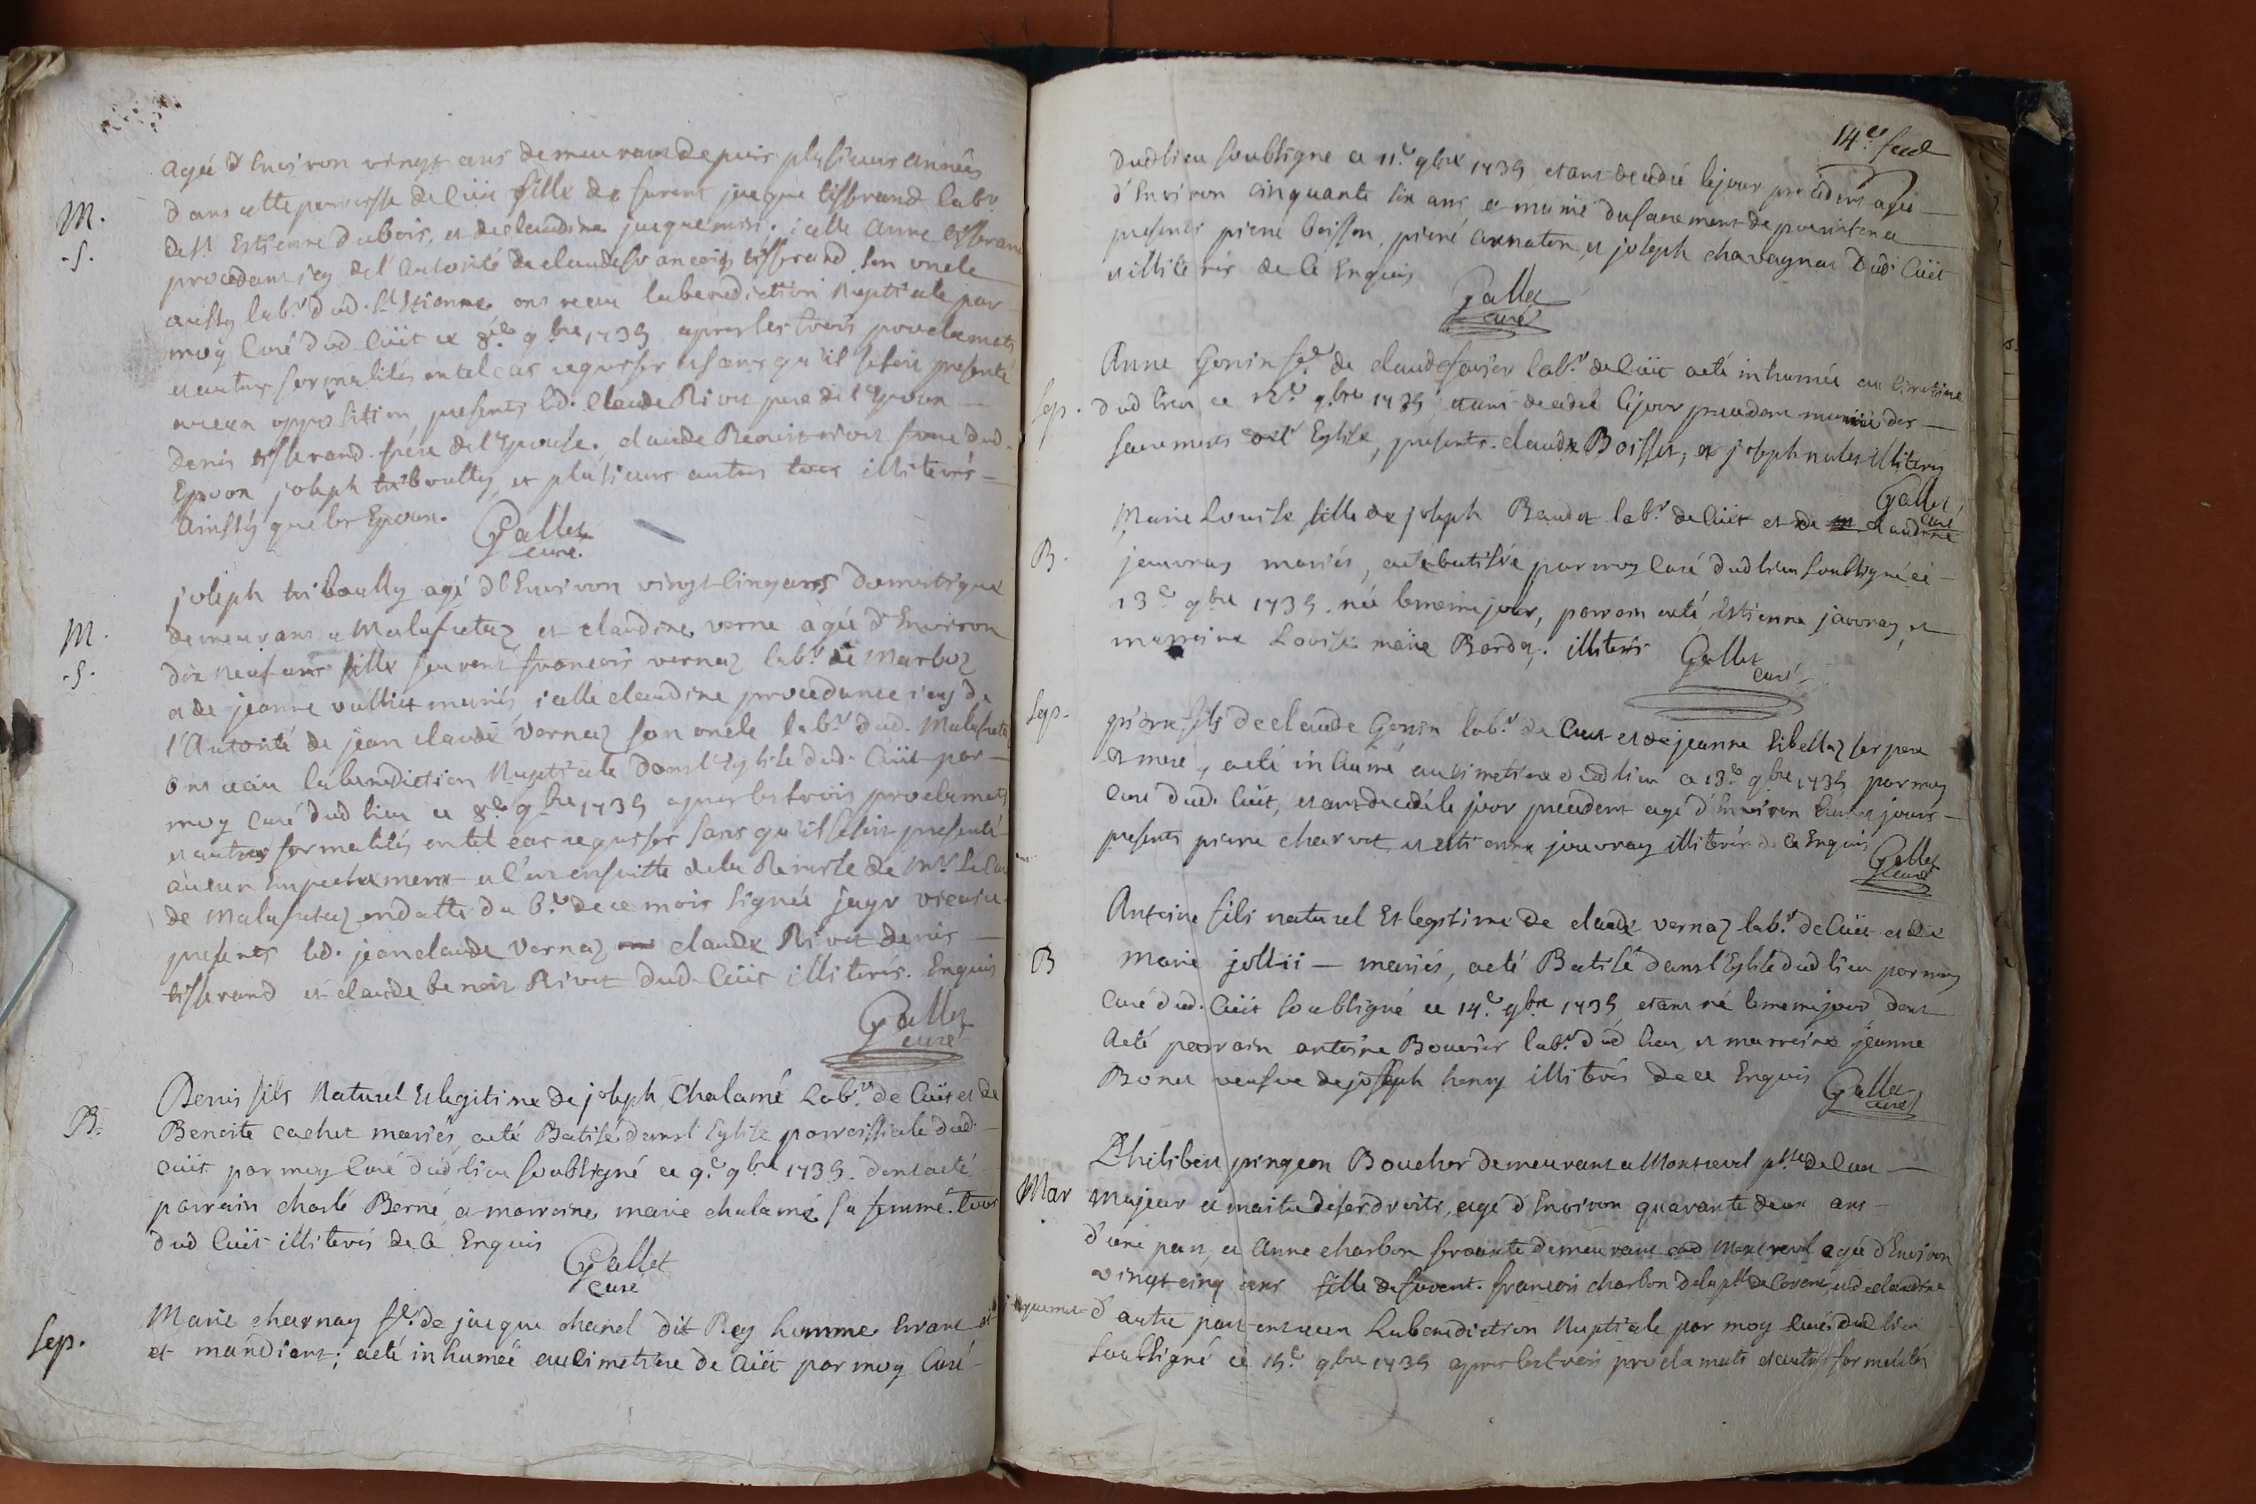 agée d'Environ vingt ans demeurant depuis plusieurs années
dans cette parroisse de Cüit fille de furent jacque tisserand labr
de St Estienne dubois, et de claudine jacquemin. icelle Anne tisserand
procedant icy de l'autorité de claude francois tisserand son oncle
aussy labr. dud. St Etienne ont receu la benediction Nuptiale par
moy Curé dud Cüit ce 8e 9bre 1739 apres les trois proclamats
et autres formalités en tel cas requises et sans qu'il se soit presenté
aucun opposition, presents led. Claude Rivet pere de l'Epoux
denis tisserand frere de l'Epouse. claude Benoit rivet frere dud.
Epoux joseph triboulley et plusieurs autres tous illiterés
ainssy que les Epoux. Gallet
curé.
M.
.S.
joseph triboulley agé d'Environ vingt cinq ans domestique
demeurant a Malafretaz et claudine verne agée d'Environ
dix neuf ans fille furent francois vernaz labr de Marboz
et de jeanne vulliet mariés, icelle claudine procedante icy de
l'Autorité de jean claude vernaz son oncle labr dud. Malafretaz
ont receu la benediction Nuptiale dans l'Eglise dud. Cüit par
moy curé dud lieu ce 8e 9bre 1739 apres les trois proclamats
et autres formalités en tel cas requises sans qu'il se soit presenté
aucun Empechement et l'un ensuitte de la Remise de Mr. le Curé
de Malafretaz en datte du 6e de ce mois signée
presents led. jean claude vernaz claude Rivet denis
tisserand et claude benoit Rivet dud. Cüit illiterés. Enquis
Gallet
curé
M.
.S.
Denis fils Naturel et legitime de joseph Chalamé Labr de Cüit et de
Benoite cachet mariés, a eté Batisé dans l'Eglise parroissiale dud.
cüit par moy Curé dud lieu soubsigné ce 9e 9bre 1739. dont a eté
parrain charle Berné, a marraine marie chalamé sa femme. tous
dud Cüit illiterés de ce Enquis
Gallet
curé
B.
Marie charnay fe. de jacque chanel dit Rey homme Errant et
et mandiant; a eté inhumée au cimetiere de Cüit par moy Curé
sep.
14e feul
dud lieu soubsigné ce 11e 9bre 1739 etant decedée le jour precedent agée
d'Environ cinquante six ans et munie du sacrement de penitence
presents pierre boisson, pierre et joseph chavagnat dud. Cüit
et illiterés de ce Enquis
Gallet
curé
Anne Gonin fe. de claude favier labr. de Cüit a eté inhumée au cimetiere
dud lieu ce 12e 9bre 1739 etant decedée le jour precedant munie des
sacrements de l'Eglise, presents. claude Boisson, et joseph illiterés
Gallet
curé
sep.
Marie Louise fille de joseph Baudet labr. de Cüit et de claudine
jauvray mariés, a eté batisée par moy Curé dud lieu soubsigné ce
13e 9bre 1739. née le meme jour, parrain a eté Estienne javvray, et
marraine Louise marie Borday. illiterés Gallet
curé
B.
pierre fils de claude Gonin labr de Cüit et de jeanne libellaz ses pere
et mere, a eté inhumé au cimetiere dud lieu ce 13e 9bre 1739 par moy
curé dud. Cüit, etant decedé le jour precedent agé d'Environ jours
presents pierre charvet, et Estienne jauvray illiterés de ce Enquis
Gallet
curé
sep.
Antoine fils naturel Et legitime de claude vernaz labr. de Cüit et de
Marie jollii mariés, a eté Batisé dans l'Eglise dud lieu par moy
Curé dud. Cüit soubsigné ce 14e 9bre 1739 etant né le meme jour dont
a eté parrain antoine Bouvier labr. dud lieu et marraine jeanne
Bonet veufve de joseph henry illiterés de ce Enquis Gallet
curé
B
Philibert pingeon Boucher demeurant a Montrevel psse de Cüit
majeur et maitre de ses droits, agé d'Environ quarante deux ans
d'une part, et Anne charbon servante demeurant aud Montrevel agée d'Environ
vingt cinq ans fille de furent francois charbon de la psse de et de claudine
jaquemet d'autre part ont receu la benediction Nuptiale par moy Curé dud lieu
soubsigné ce 15e 9bre 1739 apres les trois proclamats et autres formalités
Mar